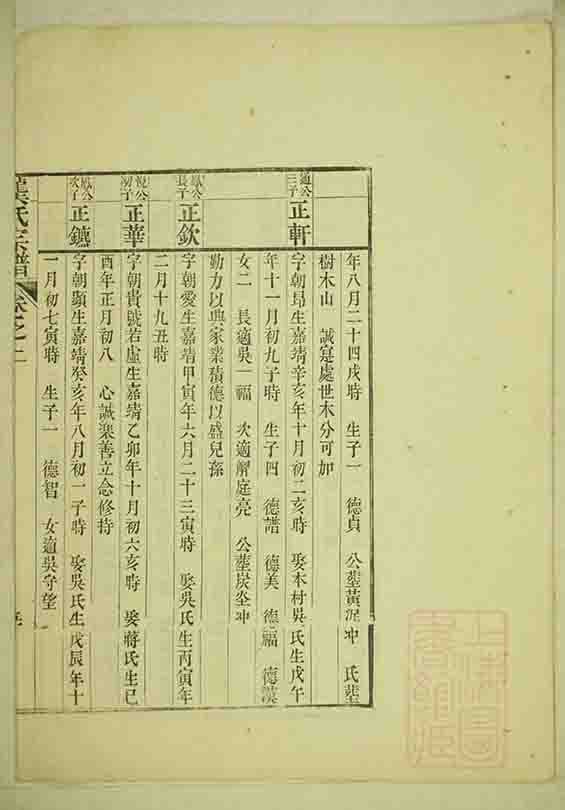 年八月二十四戌時 生子一 德貞 公塟黃泥冲 氏塟
樹木山 誠寔處世本分可加
通公三子 正軒
字朝昂生嘉靖辛亥年十月初二亥時 娶本村吳氏生戊午
年十一月初九子時 生子四 德譜 德美 德福 德漢
女二 長適吳一福 次適解庭亮 公塟炭坌冲
勤力以興家業積德以盛兒孫
鳳公長子 正欽
字朝愛生嘉靖甲寅年六月二十三寅時 娶吳氏生丙寅年
二月十九丑時
公初子 正華
字朝貴號若虛生嘉靖乙卯年十月初六亥時 娶蔣氏生己
酉年正月初八 心誠樂善立念修持
鳳公次子 正鑣
字朝顯生嘉靖癸亥年八月初一子時 娶吳氏生戊辰年十
一月初七寅時 生子一 德智 女適吳守望
氏宗譜 卷之二
上海圖書館藏